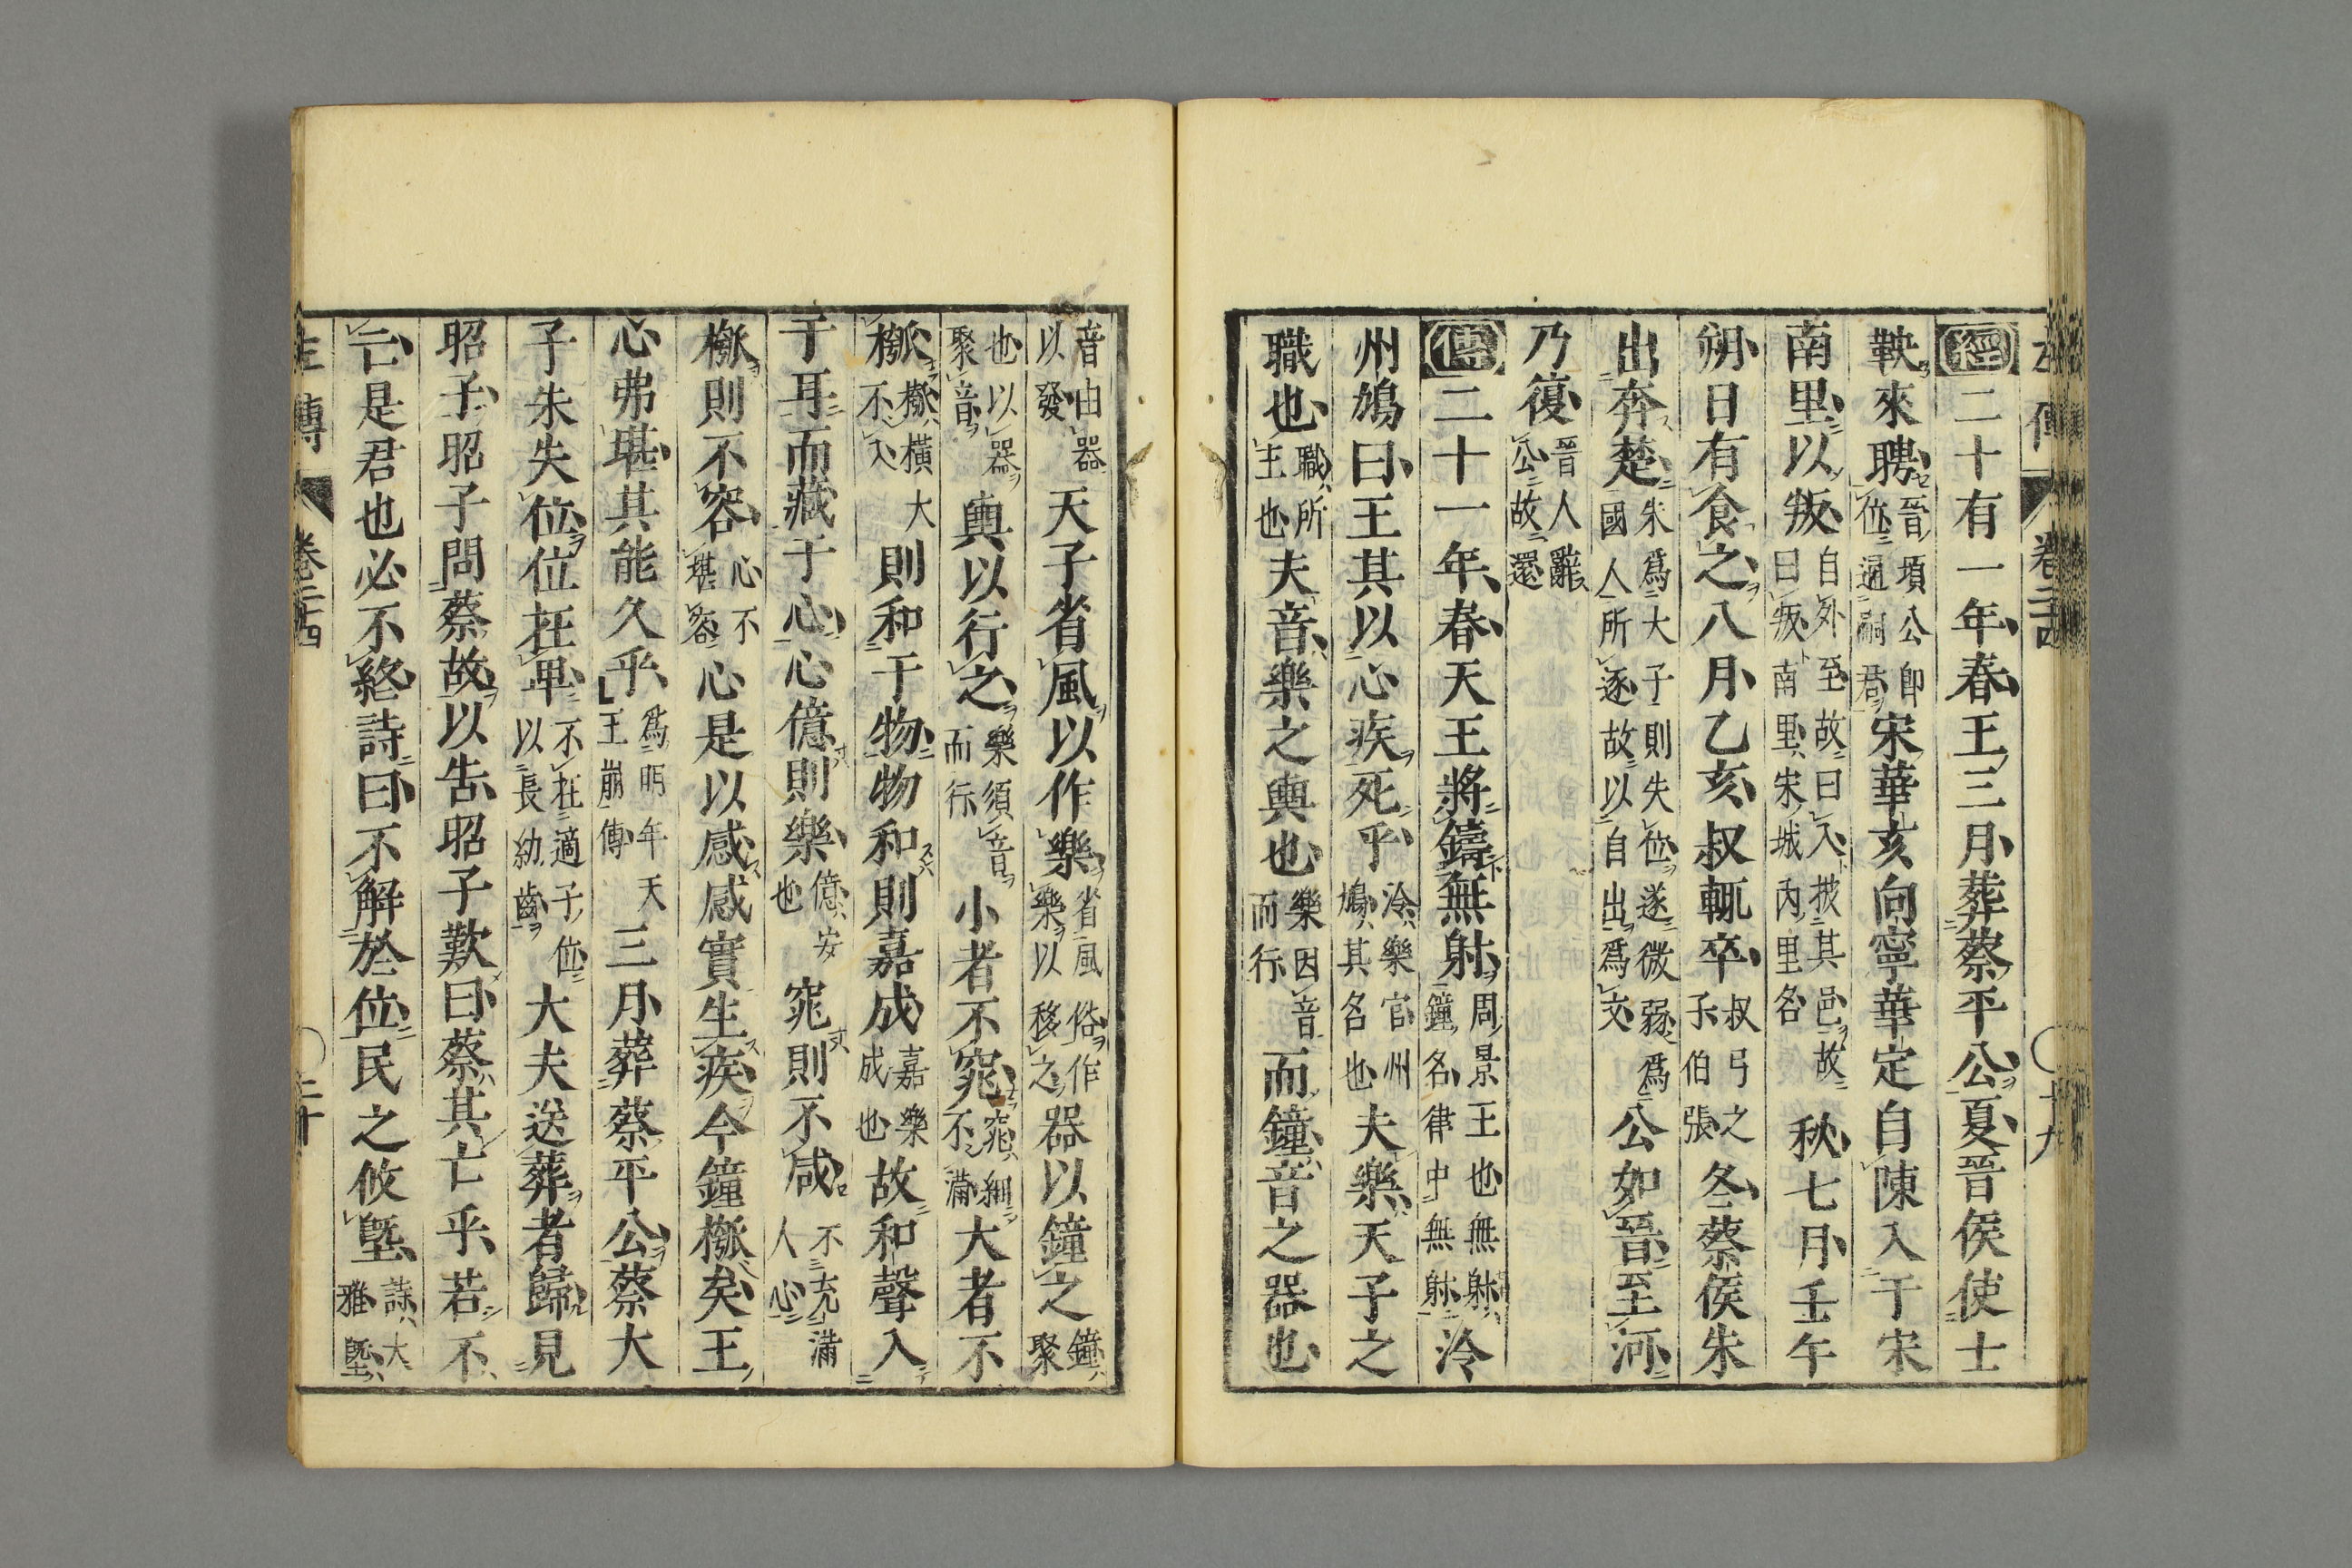 左傳 卷二十四 ○ 十九
經二十有一年春王三月葬蔡平公夏晉侯使士
鞅來聘晉頃公即位通嗣君宋華亥向寧華定自陳入于宋
南里以叛自外至故曰入披其邑故曰叛南里宋城內里名秋七月壬午
朔日有食之八月乙亥叔輒卒叔弓之子伯張冬蔡侯朱
出奔楚朱爲大子則失位遂微弱爲國人所逐故以自出爲文公如晉至河
乃復晉人辭公故還
傳二十一年春天王將鑄無射周景王也無射鐘名律中無射泠
州鳩曰王其以心疾死乎泠樂官州鳩其名也夫樂天子之
職也職所主也夫音樂之輿也樂因音而行而鐘音之器也
音由器以發天子省風以作樂省風俗作樂以移之器以鐘之鐘聚
也以器聚音輿以行之樂須音而行小者不窕窕細不滿大者不
槬槬橫大不入則和于物物和則嘉成嘉樂成也故和聲入
于耳而藏于心心億則樂億安也窕則不咸不充滿人心
槬則不容心不堪容心是以感感實生疾今鐘槬矣王
心弗堪其能久乎爲明年天王崩傳三月葬蔡平公蔡大
子朱失位位在卑不在適子位以長幼齒大夫送葬者歸見
昭子昭子問蔡故以告昭子歎曰蔡其亡乎若不
亡是君也必不終詩曰不解於位民之攸塈詩大雅塈
左傳 卷二十四 ○ 二十